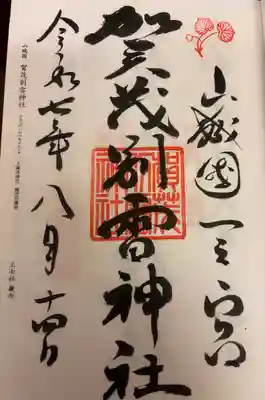 山城國一之宮
賀茂別雷神社
令和七年八月十四日
山城國 賀茂別雷神社